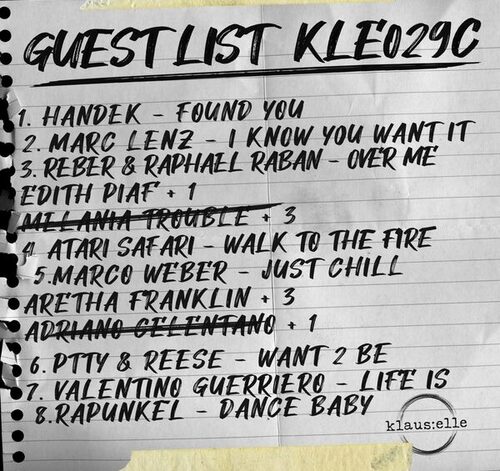 GUEST LIST KLE029C
1. HANDEK - FOUND YOU
2. MARC LENZ - I KNOW YOU WANT IT
3. REBER & RAPHAEL RABAN - OVER ME
EDITH PIAF + 1
MELANIA TROUBLE + 3
4. ATARI SAFARI - WALK TO THE FIRE
5.MARCO WEBER - JUST CHILL
ARETHA FRANKLIN + 3
ADRIANO CELENTANO + 1
6. PTTY & REESE - WANT 2 BE
7. VALENTINO GUERRIERO - LIFE IS
8.RAPUNKEL - DANCE BABY
klaus:elle